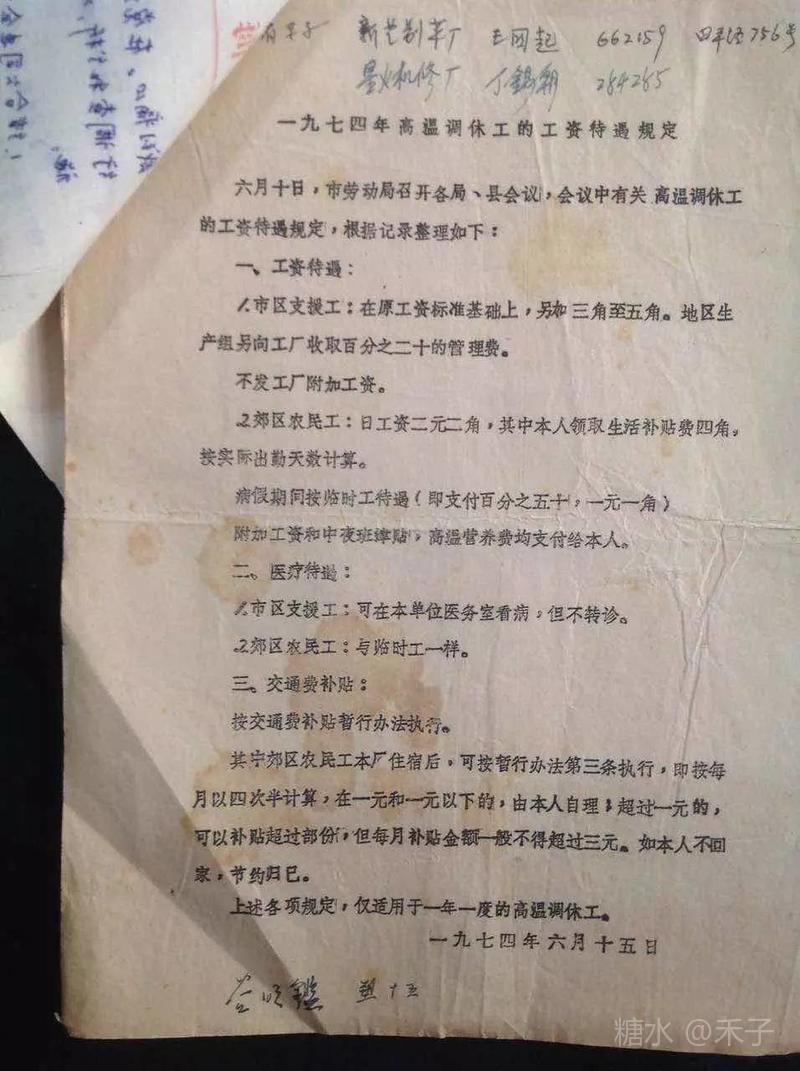 新艺制革厂 王国起 662159 四平路756号
机修厂 丁锡朝 284285
一九七四年高温调休工的工资待遇规定
六月十日，市劳动局召开各局、县会议，会议中有关高温调休工
的工资待遇规定，根据记录整理如下：
一、工资待遇：
1.市区支援工：在原工资标准基础上，另加三角至五角。地区生
产组另向工厂收取百分之二十的管理费。
不发工厂附加工资。
2.郊区农民工：日工资二元二角，其中本人领取生活补贴费四角，
按实际出勤天数计算。
病假期间按临时工待遇（即支付百分之五十，一元一角）
附加工资和中夜班津贴，高温营养费均支付给本人。
二、医疗待遇：
1.市区支援工：可在本单位医务室看病，但不转诊。
2.郊区农民工：与临时工一样。
三、交通费补贴：
按交通费补贴暂行办法执行。
其中郊区农民工本厂住宿后，可按暂行办法第三条执行，即按每
月以四次半计算，在一元和一元以下的，由本人自理；超过一元的，
可以补贴超过部份，但每月补贴金额一般不得超过三元。如本人不回
家，节约归己。
上述各项规定，仅适用于一年一度的高温调休工。
一九七四年六月十五日
糖水 @禾子